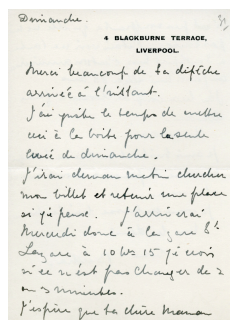 Dimanche.
4 BLACKBURNE TERRACE,
LIVERPOOL.
Merci beaucoup de ta dépêche
arrivée à l'instant.
J'ai juste le temps de mettre
ceci à la boîte pour la seule
levée de dimanche.
J'irai demain matin chercher
mon billet et retenir une place
si je peux. J'arriverai
Mercredi donc à la gare St
Lazare à 10 hrs 15 je crois
si ce n'est pas changer de 2
ou 3 minutes.
J'espère que ta chère Maman